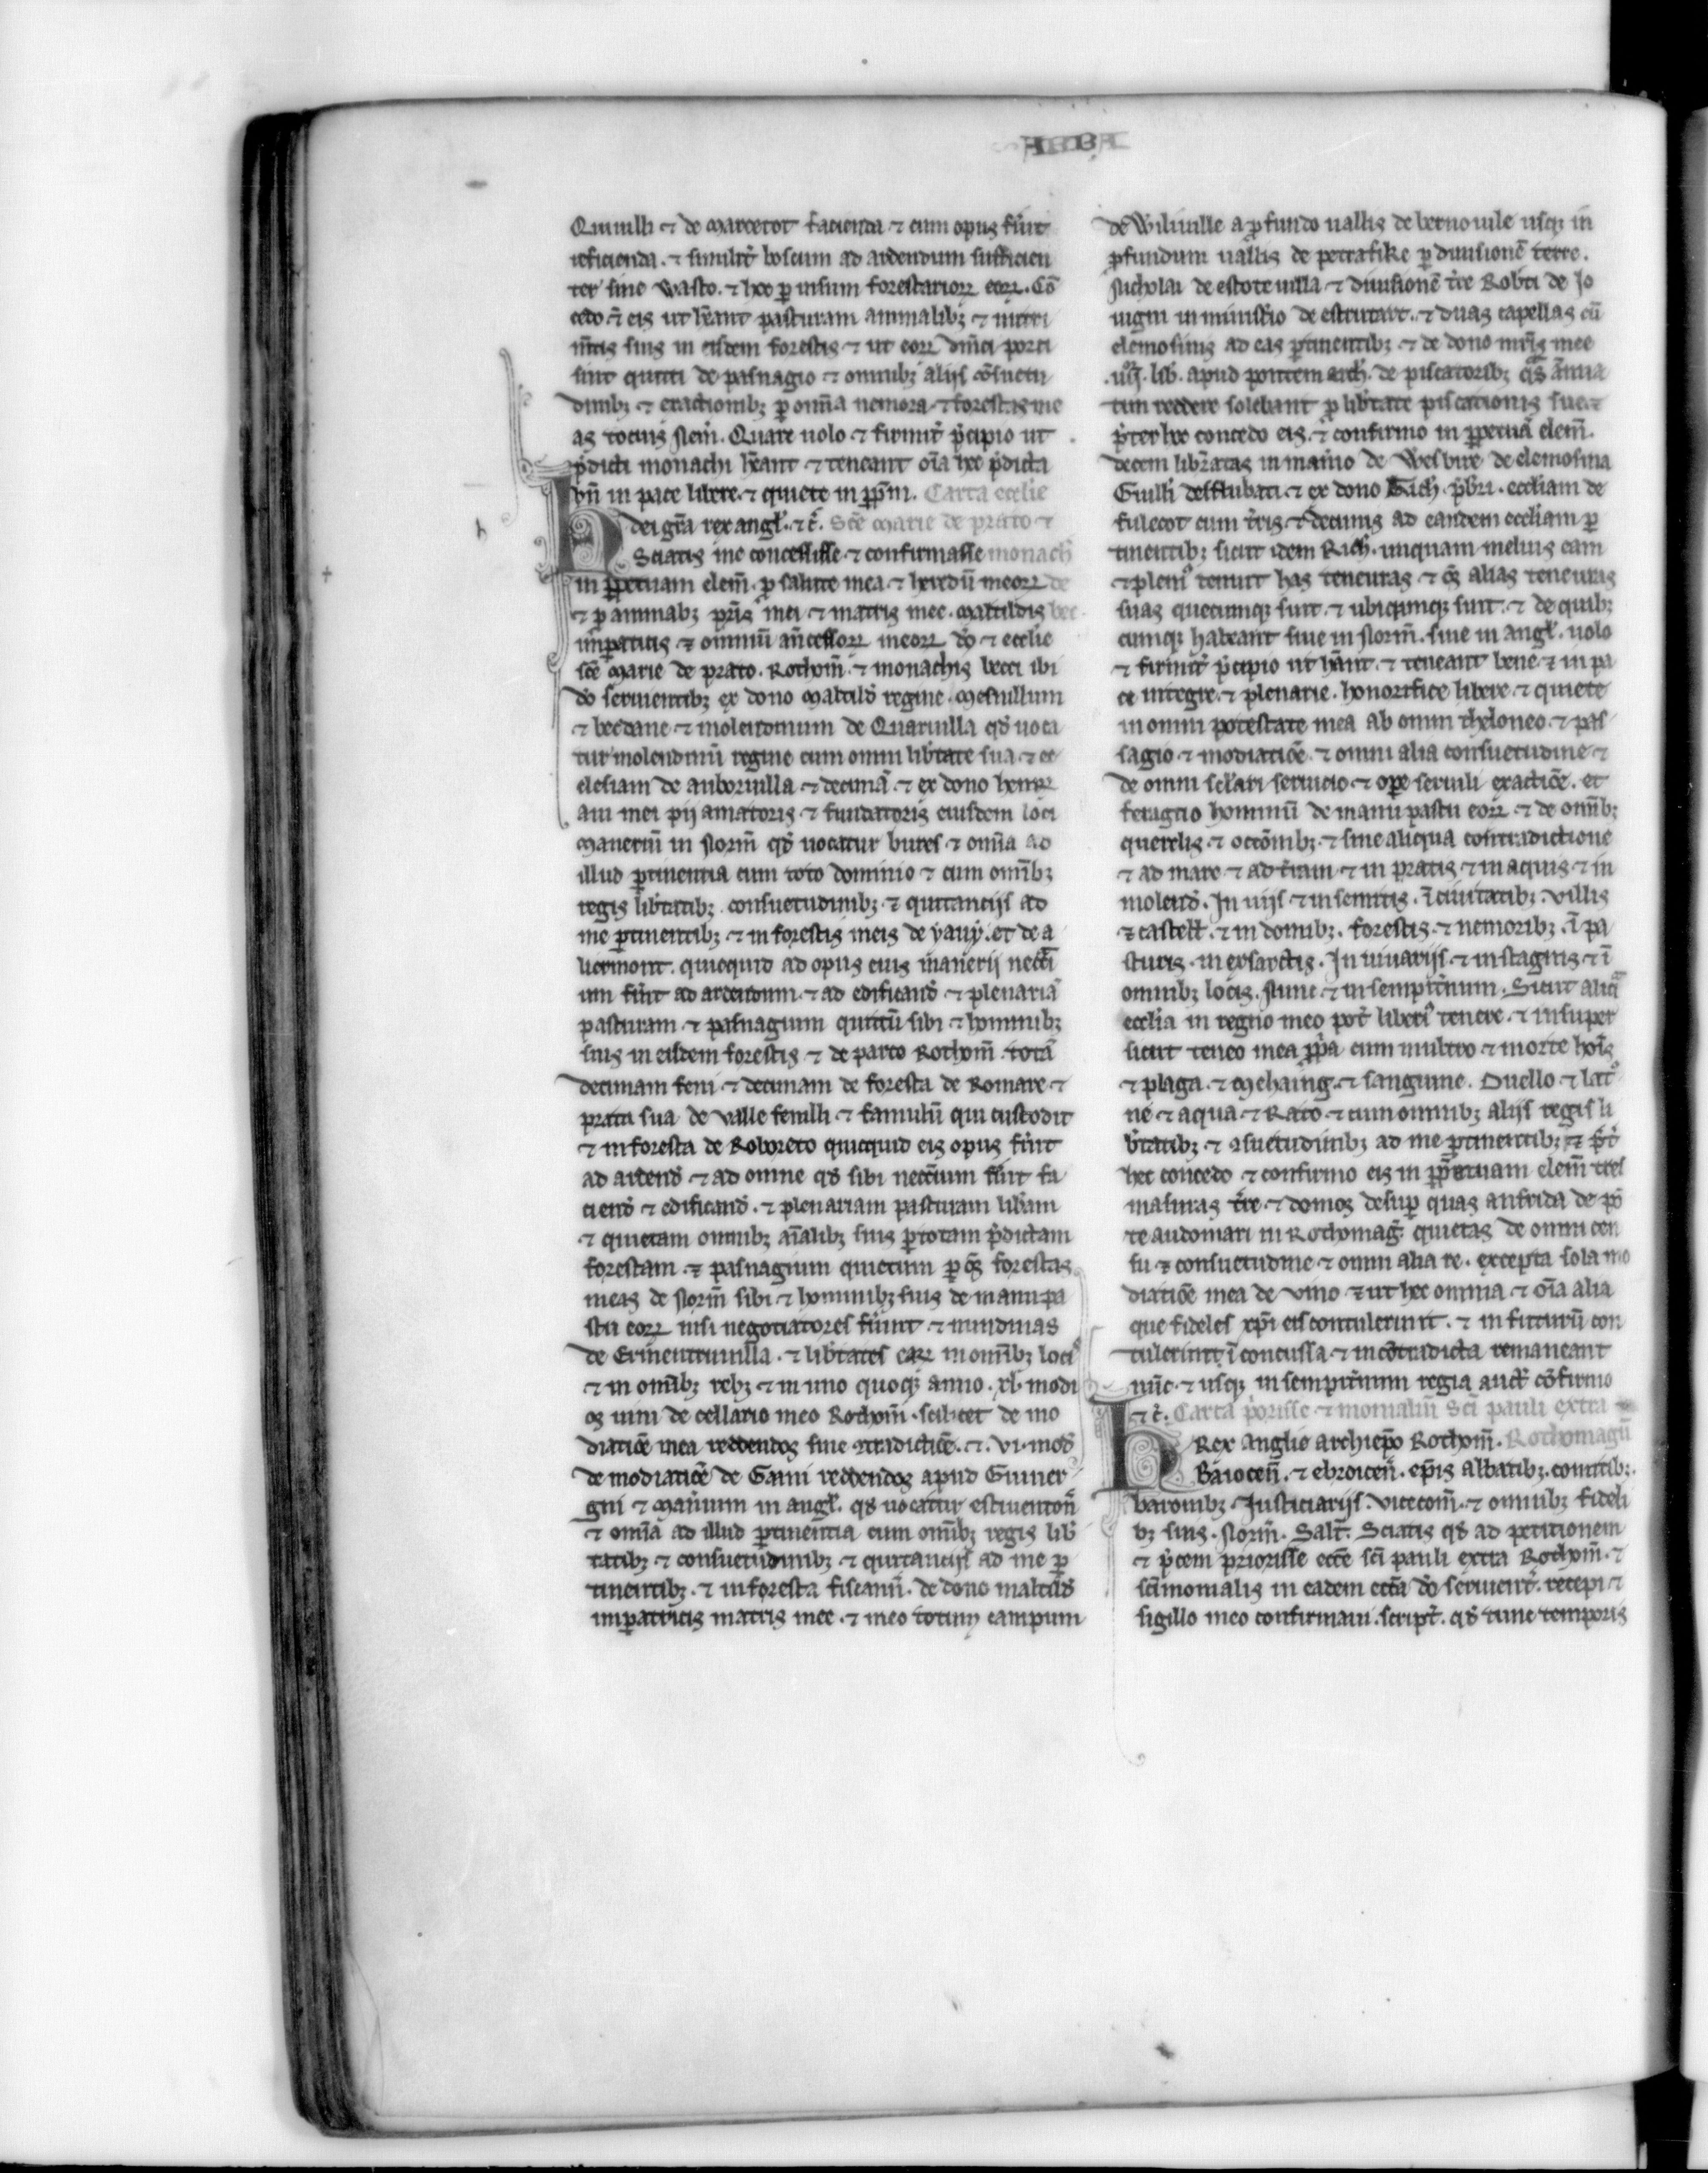 Quiuilli ⁊ de marcetot facienda ⁊ cum opus fu̾it
reficienda. ⁊ simili̾t boscum ad ardendum sufficien
ter sine wasto. ⁊ hoc ꝑ uisum forestarioꝝ eoꝝ. Cō
cedo ⁊̄ eis ut hēant pasturam animalibꝫ ⁊ nutri
m̄tis suis in eisdem forestis ⁊ ut eoꝝ dn̄ici porci
sint quieti de pasnagio ⁊ omnibꝫ alijs cōsuetu
dinibꝫ ⁊ exactionibꝫ ꝑ om̄ia nemora ⁊ forestas me
as tocius norm̄. Quare uolo ⁊ firmit̾ p̾cipio ut
p̾dicti monachi hēant ⁊ teneant oīa hec p̾dicta
bn̄ in pace libere ⁊ quiete in ꝑpm̄. Carta ecclie
h dei gr̄a rex angl̾. ⁊ c̾. Sc̄e Marie de prato ⁊
Sciatis me concessisse ⁊ confirmasse monach̾
in ꝑpetuam elem̄. ꝓ salute mea ⁊ heredū meoꝝ de
⁊ ꝓ animabꝫ pr̄is mei ⁊ matris mee. Matildis bec
imꝑatricis ⁊ omniū ancessoꝝ meoꝝ dō ⁊ ecclie
sc̄e Marie de prato. Rothom̄. ⁊ monachis becci ibi
dō seruientibꝫ ex dono Matild̾ regine. Mesnillum
⁊ becdane ⁊ molendinum de Quatuilla qd̾ uoca
tur molendinū regine cum omni lib̾tate sua ⁊ ec
clesiam de auboruilla ⁊ decimā. ⁊ ex dono henr̾
aui mei pij amatoris ⁊ fundatoris eiusdem loci
Maneriū in norm̄ qd̾ uocatur bures ⁊ omīa ad
illud ꝑtinentia cum toto dominio ⁊ cum omībꝫ
regis lib̾tatibꝫ. consuetudinibꝫ. ⁊ quitancijs ad
me ꝑtinentibꝫ. ⁊ in forestis meis de yauy. et de a
liermont. quicquid ad opus eius manerij neccī
um fu̾it ad ardendum. ⁊ ad edificand̾ ⁊ plenariā
pasturam. ⁊ pasnagium quietū sibi ⁊ hominibꝫ
suis in eisdem forestis ⁊ de parco Rothom̄. totā
decimam feni ⁊ decimam de foresta de Romare ⁊
prata sua de ualle fenilli ⁊ famulū qui custodit
⁊ in foresta de Roboreto quicquid eis opus fu̾it
ad ardend̾ ⁊ ad omne qd̾ sibi neccīum fu̾it fa
ciend̾ ⁊ edificand̾. ⁊ plenariam pasturam lib̾am
⁊ quietam omnibꝫ aīalibꝫ suis ꝑ totam p̾dictam
forestam. ⁊ pasnagium quietum ꝑ oēs forestas
meas de norm̄ sibi ⁊ hominibꝫ suis de manu pa
stu eoꝝ nisi negotiatores fu̾int ⁊ nundinas
de Ermentruuilla. ⁊ lib̾tates eaꝝ in omībꝫ locis
⁊ in omībꝫ rebꝫ ⁊ in uno quoqꝫ anno. xl. modi
os uini de cellario meo Rothom̄. scilicet de mo
diatiōe mea reddendos sine ꝯtradictiōe. ⁊. vi. mod̾
de modiatiōe de Gaini reddendos apud Guiner
gni ⁊ Man̾ium in angl̾. qd̾ uocatur estiuenton̄
⁊ omīa ad illud ꝑtinentia cum omībꝫ regis lib̾
tatibꝫ ⁊ consuetudinibꝫ ⁊ quitancijs ad me ꝑ
tinentibꝫ. ⁊ in foresta fiscanū. de dono matild̾
imꝑatricis matris mee. ⁊ meo totum campum
de Wiliuille a ꝓfundo uallis de bernouile usqꝫ in
ꝓfundum uallis de petrafike ꝑ diuisionē terre.
Nicholai de estoteuilla ⁊ diuisionē tr̄e Robti de Jo
uigni in ministio de estrutart. ⁊ duas capellas cū
elemosinis ad eas ꝑtinentibꝫ. ⁊ de dono mr̄is mee
lib̾. apud pontem arch̾. de piscatoribꝫ q̄s annua
tim reddere solebant ꝓ lib̾tate piscationis sue ⁊
p̾ter hec concedo eis. ⁊ confirmo in ꝑpetuā elem̄.
decem libratas in man̾io de Westbire de elemosina
Guill̾i delestubati. ⁊ ex dono Rich̾. pb̾ri. eccliam de
fulecot cum tr̄is. ⁊ decimis ad eandem eccliam ꝑ
tinentibꝫ sicut idem Rich̾. unquam melius eam
⁊ pleni̾ tenuit has teneuras ⁊ oēs alias teneuras
suas quecumqꝫ sint. ⁊ ubicumqꝫ sint. ⁊ de quibꝫ
cumqꝫ habeant siue in norm̄. siue in angl̾. uolo
⁊ firmit̾ p̾cipio ut hēant. ⁊ teneant bene ⁊ in pa
ce integre. ⁊ plenarie. honorifice libere ⁊ quiete
in omni potestate mea ab omni theloneo ⁊ pas
sagio ⁊ modiatiōe. ⁊ omni alia consuetudine ⁊
de omni sclari seruicio ⁊ oꝑe seruili exactiōe. et
feragtio hominū de manu pastu eoꝝ. ⁊ de omībꝫ
querelis. ⁊ occōnibꝫ. ⁊ sine aliqua contradictione
⁊ ad mare ⁊ ad tr̄am ⁊ in pratis ⁊ in aquis ⁊ in
molend̾. In uijs ⁊ in semitis. ī ciuitatibꝫ. villis
⁊ castell̾. ⁊ in domibꝫ. forestis. ⁊ nemoribꝫ. ī pa
sturis. in exsarctis. In uiuarijs ⁊ in stagnis ⁊ ī
omnibꝫ locis. Nunc ⁊ in sempit̾num. Sicut aliq̄
ecclīa in regno meo pot̾ liberi̾ tenere. ⁊ insuper
sicut teneo mea ꝓpa cum multro ⁊ morte hoīs
⁊ plaga. ⁊ Mehaing. ⁊ sanguine. Duello. ⁊ latro
ne ⁊ aqua ⁊ Rato ⁊ cum omnibꝫ alijs regis li
b̾tatibꝫ ⁊ ꝯsuetudinibꝫ ad me ꝑtinentibꝫ ⁊ p̾t̾
hec concedo ⁊ confirmo eis in ꝑpetuam elem̄ tres
masuras tr̄e. ⁊ domos desuꝑ quas anfrida de pō
te audomari in Rothomag̾. quietas de omni cen
su ⁊ consuetudine ⁊ omni alia re. excepta sola mo
diatiōe mea de uino ⁊ ut hec omnia ⁊ oīa alia
que fideles xp̄i eis contulerunt. ⁊ in futurū con
tulerint ī concussa ⁊ in cōtradicta remaneant
nūc. ⁊ usqꝫ in sempit̾num regia auct̾. cōfirmo
⁊ c̾. Carta p̾orisse ⁊ monialiū Sc̄i pauli extra
h Rex anglie archiepō Rothom̄. Rothomagū
Baiocen̄. ⁊ ebroicen̄. epīs abbatibꝫ. comitibꝫ.
baronibꝫ. Justiciarijs. vicecom̄. ⁊ omnibꝫ fideli
bꝫ suis. Norm̄. Salt̄. Sciatis qd̾ ad petitionem
⁊ p̾cem priorisse eccē sc̄i pauli extra Rothom̄. ⁊
sc̄imonialis in eadem eccā dō seruient̾. recepi ⁊
sigillo meo confirmaui. script̾. qd̾ tunc temporis